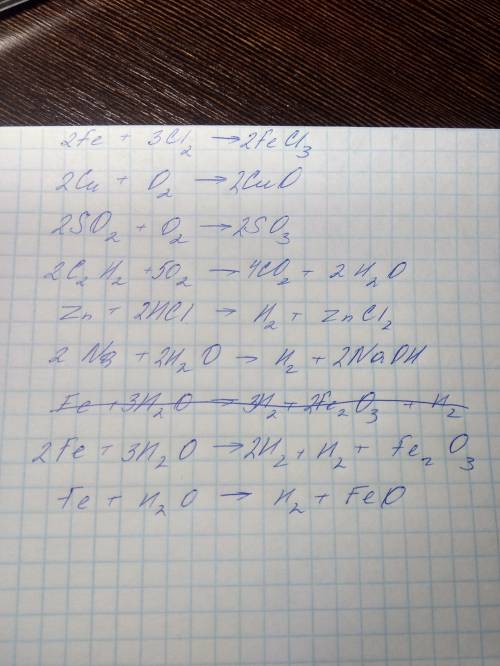 2Fe + 3Cl₂ → 2FeCl₃
2Cu + O₂ → 2CuO
2SO₂ + O₂ → 2SO₃
2C₂H₂ + 5O₂ → 4CO₂ + 2H₂O
Zn + 2HCl → H₂ + ZnCl₂
2Na + 2H₂O → H₂ + 2NaOH
Fe + 3H₂O → 3H₂ + 2Fe₂O₃ + H₂
2Fe + 3H₂O → 2H₂ + H₂ + Fe₂O₃
Fe + H₂O → H₂ + FeO